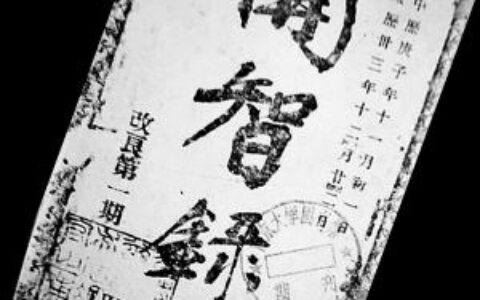 中歷庚子年十一月初一日
歷卅三年十二月廿二日
開智錄
改良第一期